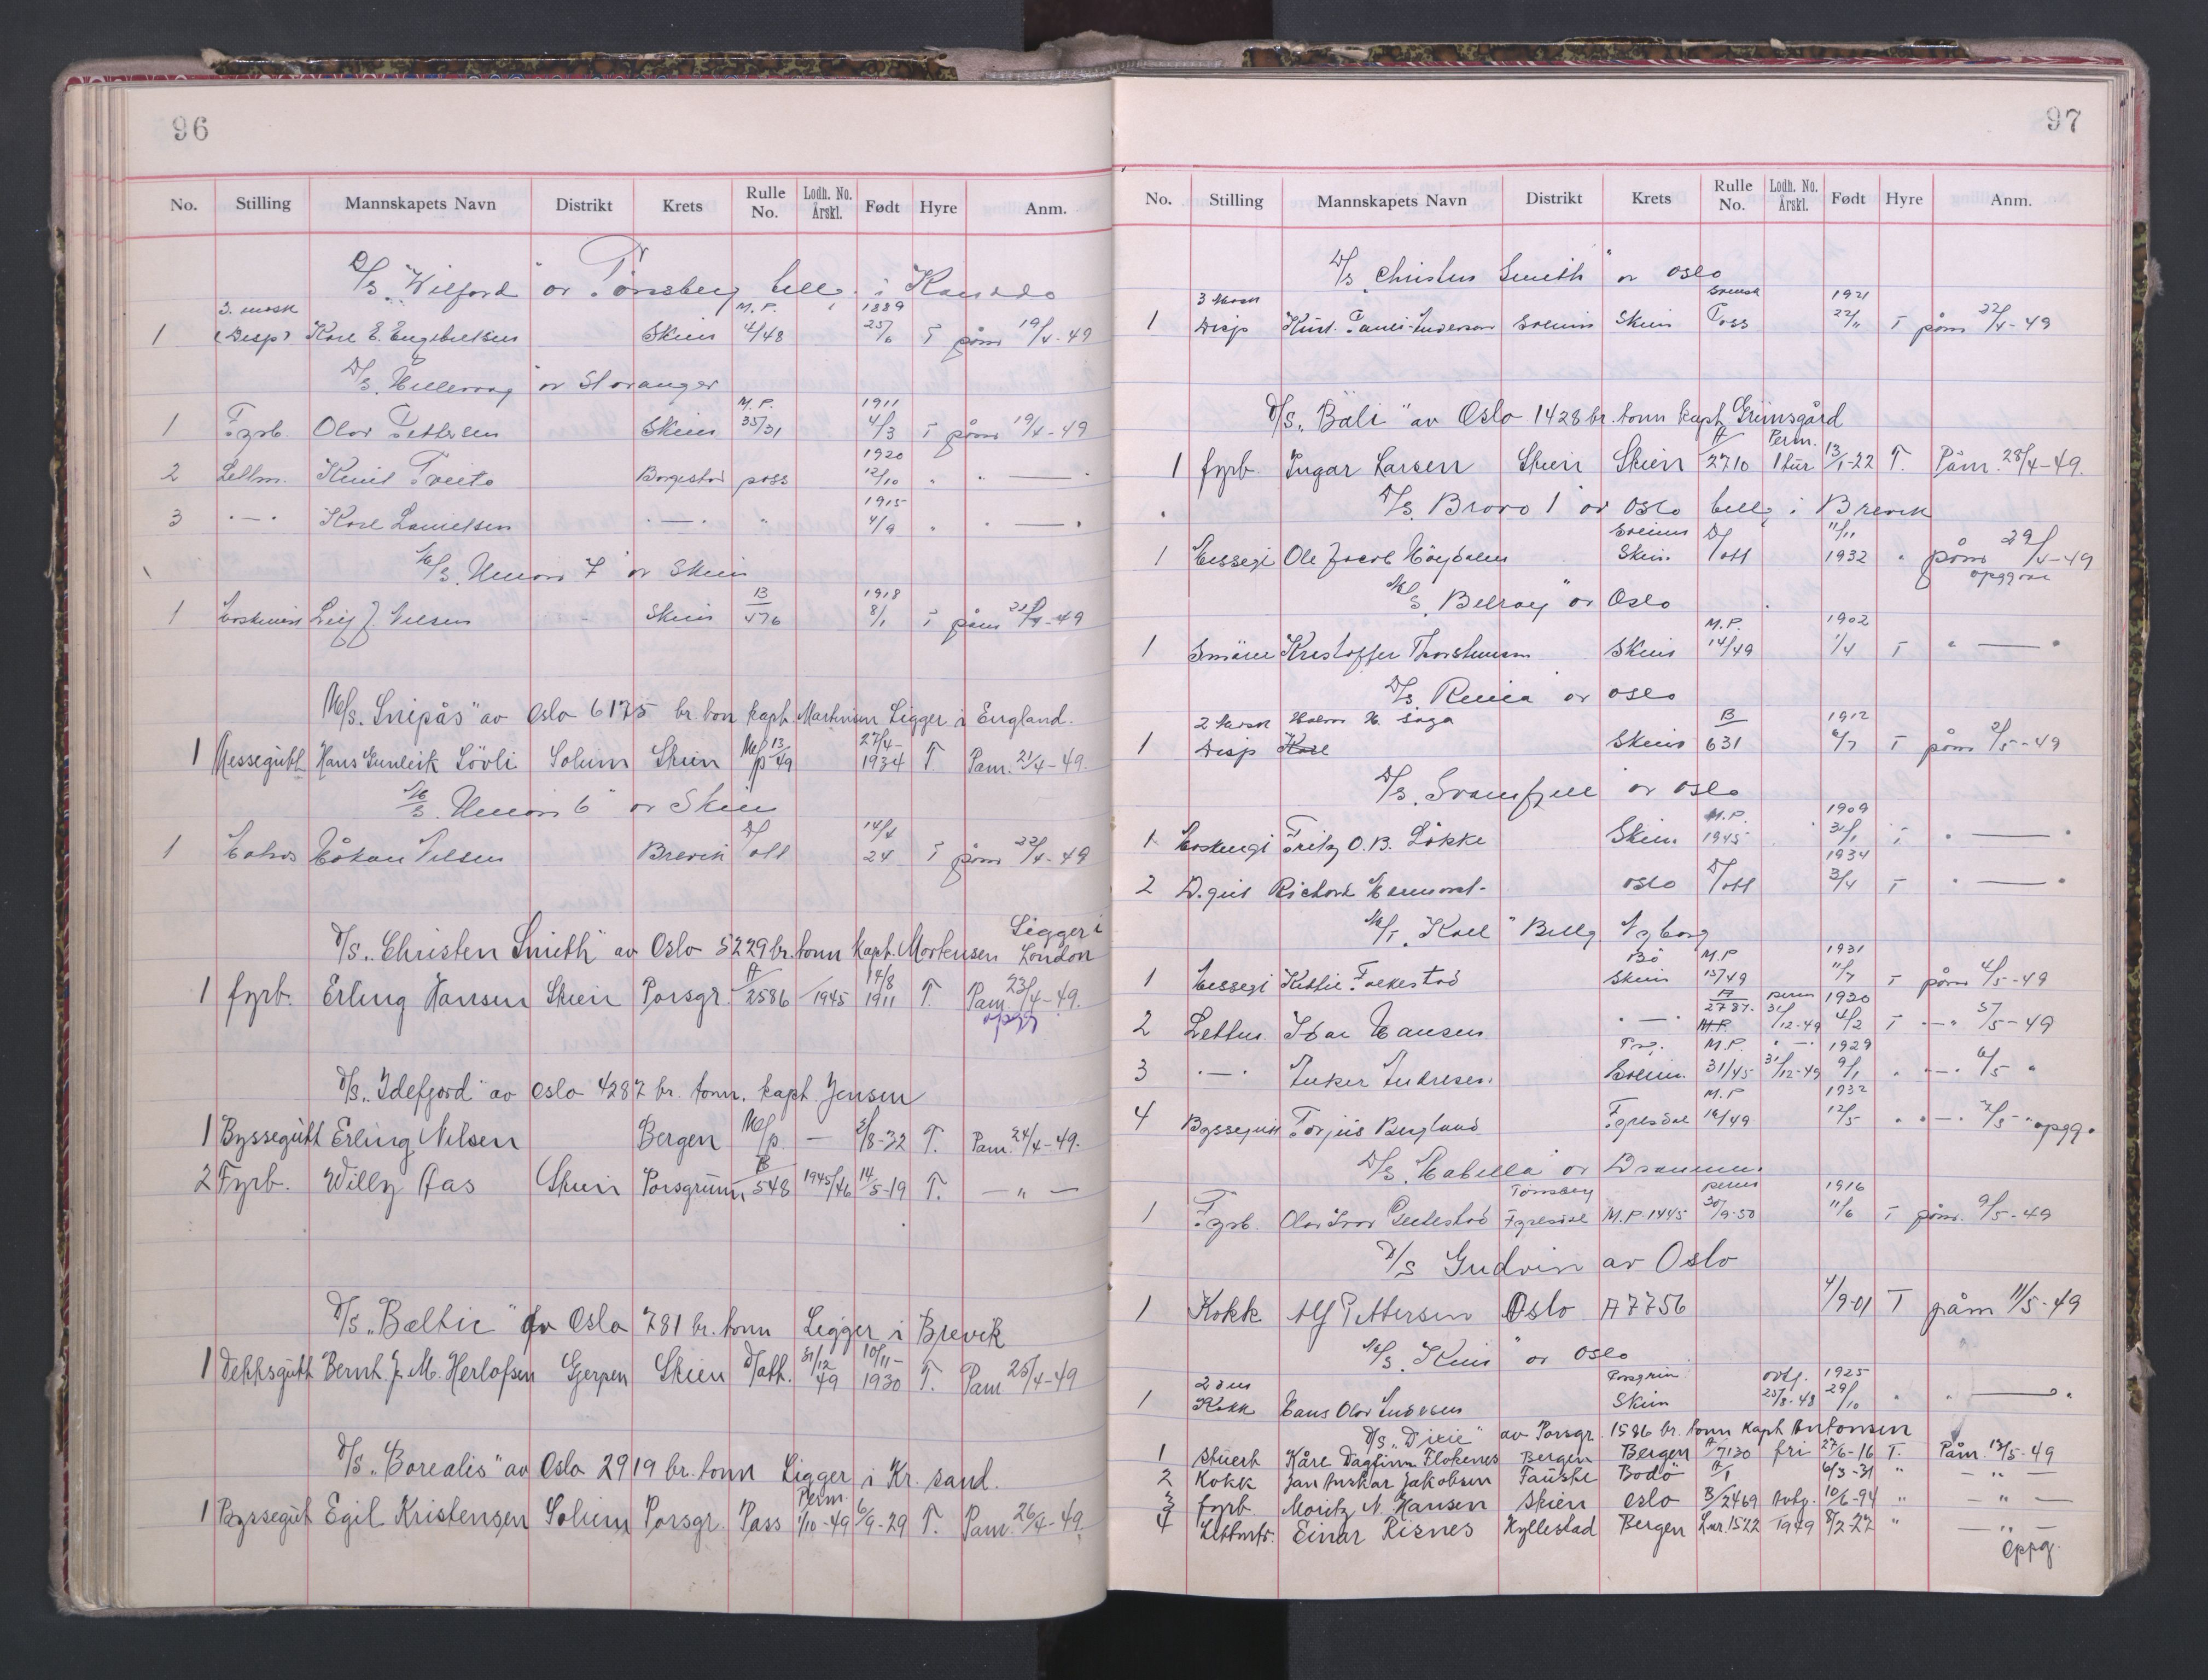 96
No. Stilling Mannskapets Navn Distrikt Krets Rulle No. Lodh. No. Årskl. Født Hyre Anm.
D/S „Wilford" av Tønsberg
3. mask M. P. 1889
1 (Disp) Karl E. Engebretsen Skien 4/48 25/6 T påm 19/4-49
D/S av Stavanger
M. P. 1911
1 Fyrb. Olav Pettersen Skien 35/31 4/3 T påm 19/4-49
1920
2 Lettm. Knut Tveito Borgestad pass 12/10 " " — "
1915
3 -"- Karl Danielsen -"- " 4/9 " " — "
M/S „Union 7" av Skien
B 1918
1 Leif J Nilsen Skien 576 8/1 T påm 21/4-49
M/S. „Snipås" av Oslo 6175 br. ton kapt. Martinsen Ligger i England.
1 Messegutt Hans Gunleik Lövli Solum Skien M/p 13/49 27/4-1934 T. Påm. 21/4-49.
M/S „Union 6" av Skien
1 Håkon Nilsen Brevik D/att 14/4 24 T påm 22/4-49
D/S „Christen Smith" av Oslo 5229 br. tonn kapt. Mortensen Ligger i London
1 fyrb. Erling Hansen Skien Porsgr. A/2586 1945 14/8 1911 T. Påm. 23/4-49.
oppg
D/S. „Idefjord" av Oslo 4287 br. tonn. kapt. Jensen
1 Byssegutt Erling Nilsen Bergen M/p. — 2/8-32 T. Påm. 24/4-49.
2 Fyrb. Willy Aas Skien Porsgrunn B/548 1945/46 14/5-19 T. — " —
D/S „Baltic" av Oslo 781 br. tonn Ligger i Brevik
1 Dekksgutt Bernh. J. M. Herlofsen Gjerpen Skien D/att. 31/12 49 10/11-1930 T. Påm 25/4-49
D/S. „Borealis" av Oslo 2919 br. tonn Ligger i Kr. sand.
1 Byssegut Egil Kristensen Solum Porsgr. Pass Perm. 1/10-49 6/9-29 T. Påm. 26/4-49.
97
No. Stilling Mannskapets Navn Distrikt Krets Rulle No. Lodh. No. Årskl. Født Hyre Anm.
D/S „Christen Smith" av Oslo
3 Mask Svensk 1921
1 Disp Knut Pauli-Anderson Skien Pass 22/11 T påm 22/4-49
D/S. „Bali" av Oslo 1428 br. tonn kapt. Grimsgård
1 fyrb. Ingar Larsen Skien Skien A/2710 Perm. 1 tur 13/1-22 T. Påm. 28/4-49.
D/S. Bravo 1 av Oslo i Brevik
1 Messegt Ole Jacob Høydalen Skien D/att 11/11 1932 " påm 29/4-49
oppgave
M/S. „Belray" av Oslo
M. P. 1902
1 Smører Kristoffer Thorstensen Skien 14/49 1/4 T " — "
D/S. av Oslo
2 Mask Halvor H. Haga B 1912
1 Disp Karl Skien 631 6/7 T påm 2/5-49
D/S. Svanefjell av Oslo
M.P. 1909
1 Fritz O. B. Løkke Skien 1945 31/1 T " — "
1934
2 D.gut Richard Oslo D/att 3/4 T " — "
M/T. „Koll" Nyborg
Bø M.P 1931
1 Messegt Kittil Folkestad Skien 13/49 11/7 T påm 4/5-49
A/2787. perm 1920
2 Lettm. Ivar Hansen -"- M.P. 31/12-49 4/2 T -"- 5/5-49
M.P. 1929
3 -"- Andresen. 31/45 31/12-49 9/1 " -"- 6/5 "
M.P 1932
4 Byssegutt Torjus Bergland Fyresdal 16/49 12/5 " -"- 7/5 " oppg.
D/S. „Isabella" av Drammen.
Tønsberg perm 1916
1 Fyrb. Olav Ivar Fyresdal M.P. 1445 30/9-50 11/6 T påm. 9/5-49
D/S Gudvin av Oslo
1 Kokk Alf Pettersen Oslo A 7756 4/9-01 T påm 11/5-49
M/S. av Oslo
2 den Porsgrunn avtj. 1925
1 Kokk Hans Olav Andersen Skien 25/8-48 29/10 " " — "
D/S „Dixie" av Porsgr. 1586 br. tonn kapt Antonsen
1 Stuert Kåre Dagfinn Flokenes Bergen Bergen A/7130 fri 27/6-16 T. Påm. 13/5-49
2 Kokk Jan Anskar Jakobsen Fauske Bodö A/1 6/3-31 " — " —
3 fyrb. Moritz N. Hansen Skien Oslo B/2469 Avtj. 10/6-94 " — " —
4 Lettmtr. Einar Risnes Hyllestad Bergen Lnr.1522 1949 8/2-27 " — " —
Oppg.